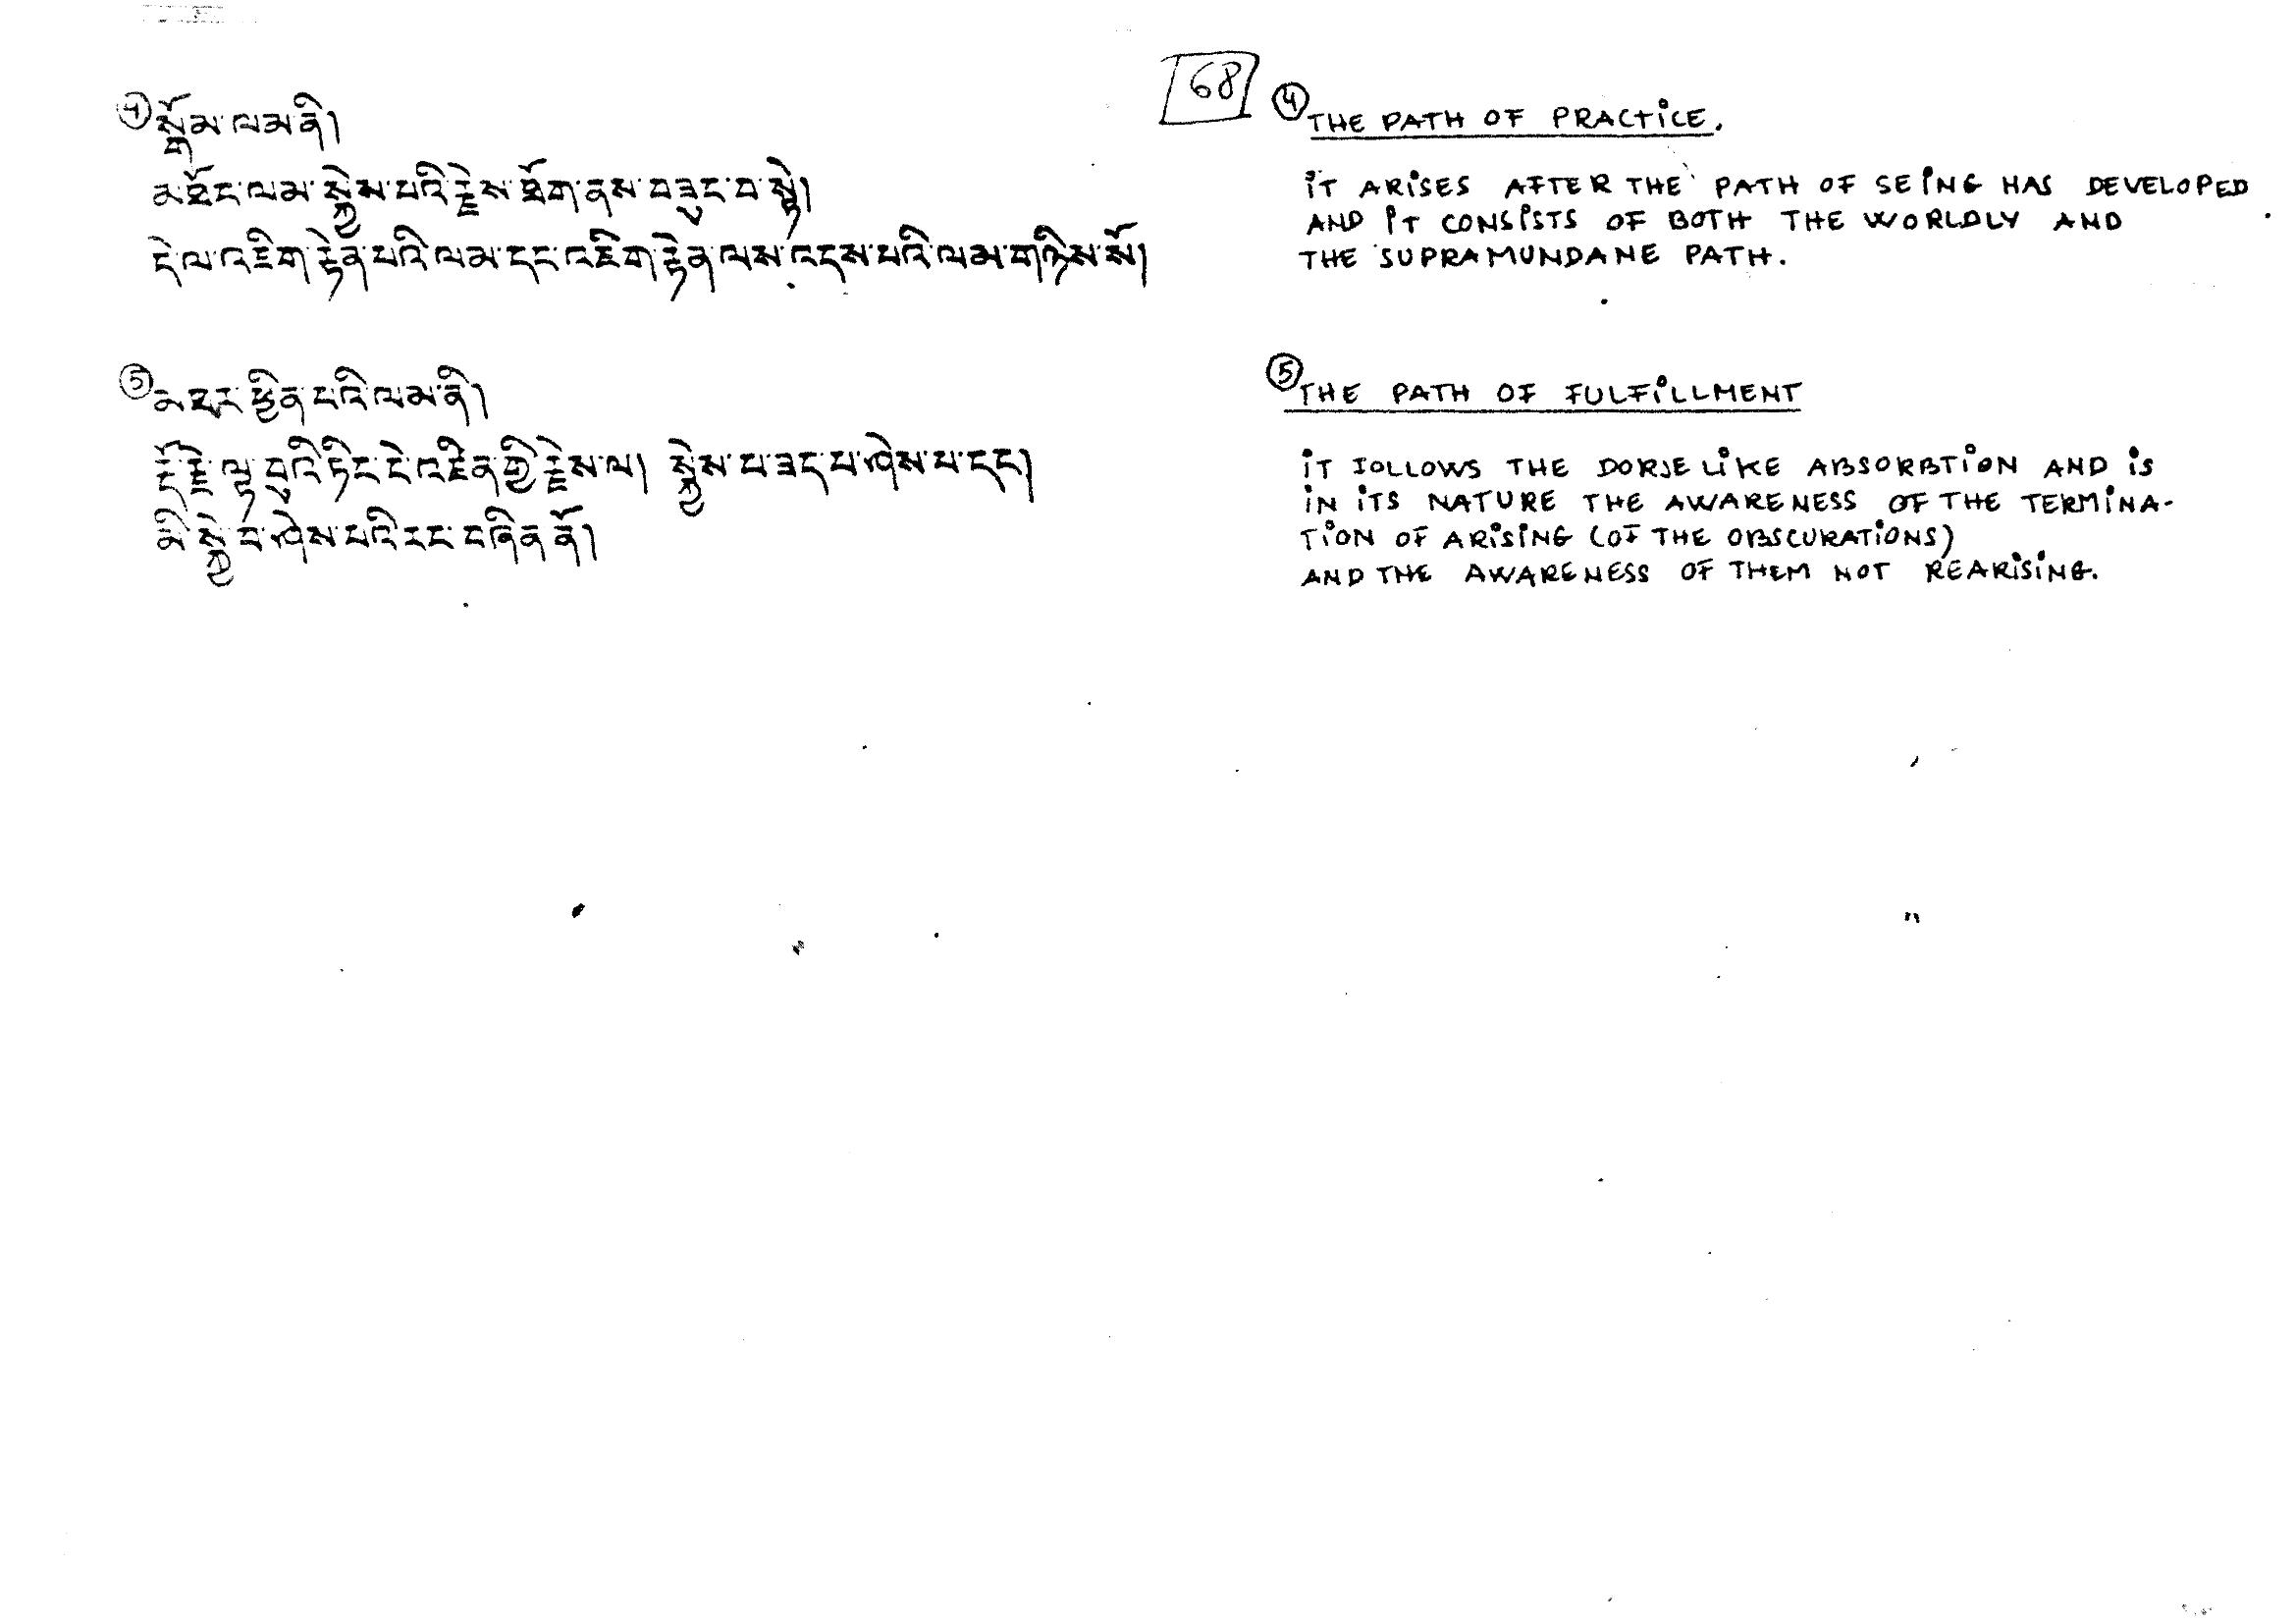 68
④ སྒོམ་ལམ་ནི།
མཐོང་ལམ་སྐྱེས་པའི་རྗེས་ཐོག་ནས་བཟུང་བ་སྟེ།
དེ་ལ་འཇིག་རྟེན་པའི་ལམ་དང་འཇིག་རྟེན་ལས་འདས་པའི་ལམ་གཉིས་སོ།
⑤ མཐར་ཕྱིན་པའི་ལམ་ནི།
རྡོ་རྗེ་ལྟ་བུའི་ཏིང་ངེ་འཛིན་གྱི་རྗེས་ལ། སྐྱེས་པ་ཟད་པ་ཤེས་པ་དང།
མི་སྐྱེ་བ་ཤེས་པའི་རང་བཞིན་ནོ།
④ THE PATH OF PRACTICE.
IT ARISES AFTER THE PATH OF SEING HAS DEVELOPED
AND IT CONSISTS OF BOTH THE WORLDLY AND
THE SUPRAMUNDANE PATH.
⑤ THE PATH OF FULFILLMENT
IT FOLLOWS THE DORJE LIKE ABSORBTION AND IS
IN ITS NATURE THE AWARENESS OF THE TERMINA-
TION OF ARISING (OF THE OBSCURATIONS)
AND THE AWARENESS OF THEM NOT REARISING.